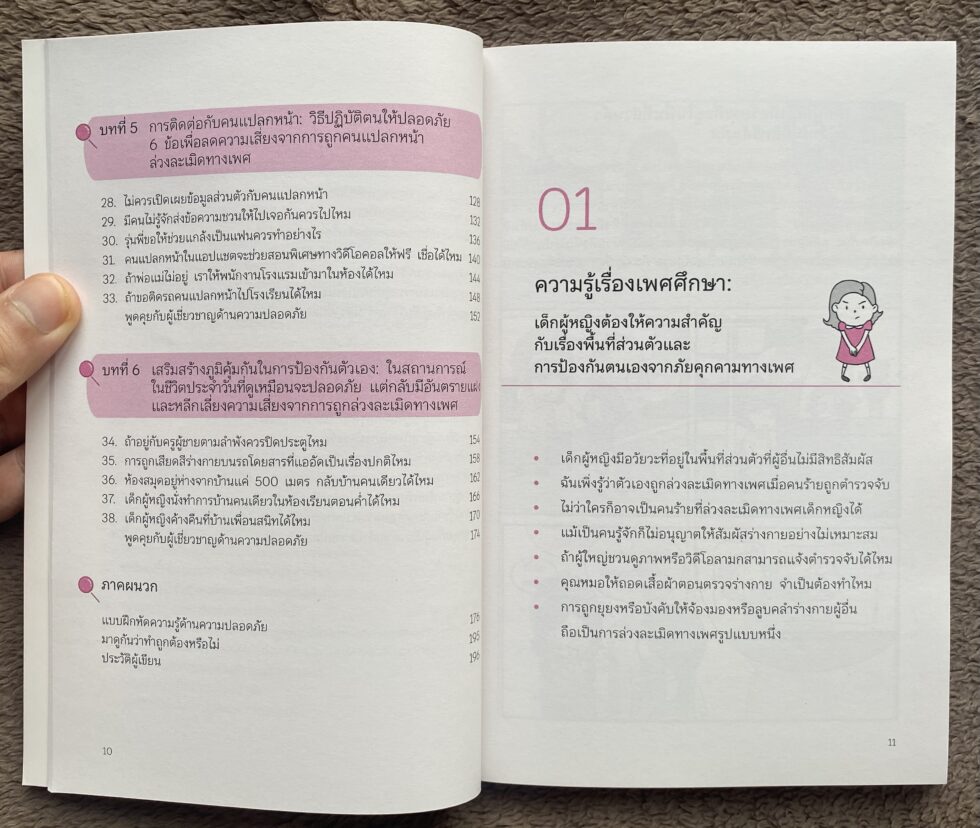 บทที่ 5 การติดต่อกับคนแปลกหน้า: วิธีปฏิบัติตนให้ปลอดภัย
6 ข้อเพื่อลดความเสี่ยงจากการถูกคนแปลกหน้า
ล่วงละเมิดทางเพศ
28. ไม่ควรเปิดเผยข้อมูลส่วนตัวกับคนแปลกหน้า 128
29. มีคนไม่รู้จักส่งข้อความชวนให้ไปเจอกันควรไปไหม 132
30. รุ่นพี่ขอให้ช่วยแกล้งเป็นแฟนควรทำอย่างไร 136
31. คนแปลกหน้าในแอปแชตจะช่วยสอนพิเศษทางวิดีโอคอลให้ฟรี เชื่อได้ไหม 140
32. ถ้าพ่อแม่ไม่อยู่ เราให้พนักงานโรงแรมเข้ามาในห้องได้ไหม 144
33. ถ้าขอติดรถคนแปลกหน้าไปโรงเรียนได้ไหม 148
พูดคุยกับผู้เชี่ยวชาญด้านความปลอดภัย 152
บทที่ 6 เสริมสร้างภูมิคุ้มกันในการป้องกันตัวเอง: ในสถานการณ์
ในชีวิตประจำวันที่ดูเหมือนจะปลอดภัย แต่กลับมีอันตรายแฝง
และหลีกเลี่ยงความเสี่ยงจากการถูกล่วงละเมิดทางเพศ
34. ถ้าอยู่กับครูผู้ชายตามลำพังควรปิดประตูไหม 154
35. การถูกเสียดสีร่างกายบนรถโดยสารที่แออัดเป็นเรื่องปกติไหม 158
36. ห้องสมุดอยู่ห่างจากบ้านแค่ 500 เมตร กลับบ้านคนเดียวได้ไหม 162
37. เด็กผู้หญิงนั่งทำการบ้านคนเดียวในห้องเรียนตอนค่ำได้ไหม 166
38. เด็กผู้หญิงค้างคืนที่บ้านเพื่อนสนิทได้ไหม 170
พูดคุยกับผู้เชี่ยวชาญด้านความปลอดภัย 174
ภาคผนวก
แบบฝึกหัดความรู้ด้านความปลอดภัย 176
มาดูกันว่าทำถูกต้องหรือไม่ 195
ประวัติผู้เขียน 196
10
01
ความรู้เรื่องเพศศึกษา:
เด็กผู้หญิงต้องให้ความสำคัญ
กับเรื่องพื้นที่ส่วนตัวและ
การป้องกันตนเองจากภัยคุกคามทางเพศ
• เด็กผู้หญิงมีอวัยวะที่อยู่ในพื้นที่ส่วนตัวที่ผู้อื่นไม่มีสิทธิสัมผัส
• ฉันเพิ่งรู้ว่าตัวเองถูกล่วงละเมิดทางเพศเมื่อคนร้ายถูกตำรวจจับ
• ไม่ว่าใครก็อาจเป็นคนร้ายที่ล่วงละเมิดทางเพศเด็กหญิงได้
• แม้เป็นคนรู้จักก็ไม่อนุญาตให้สัมผัสร่างกายอย่างไม่เหมาะสม
• ถ้าผู้ใหญ่ชวนดูภาพหรือวิดีโอลามกสามารถแจ้งตำรวจจับได้ไหม
• คุณหมอให้ถอดเสื้อผ้าตอนตรวจร่างกาย จำเป็นต้องทำไหม
• การถูกยุยงหรือบังคับให้จ้องมองหรือลูบคลำร่างกายผู้อื่น
ถือเป็นการล่วงละเมิดทางเพศรูปแบบหนึ่ง
11